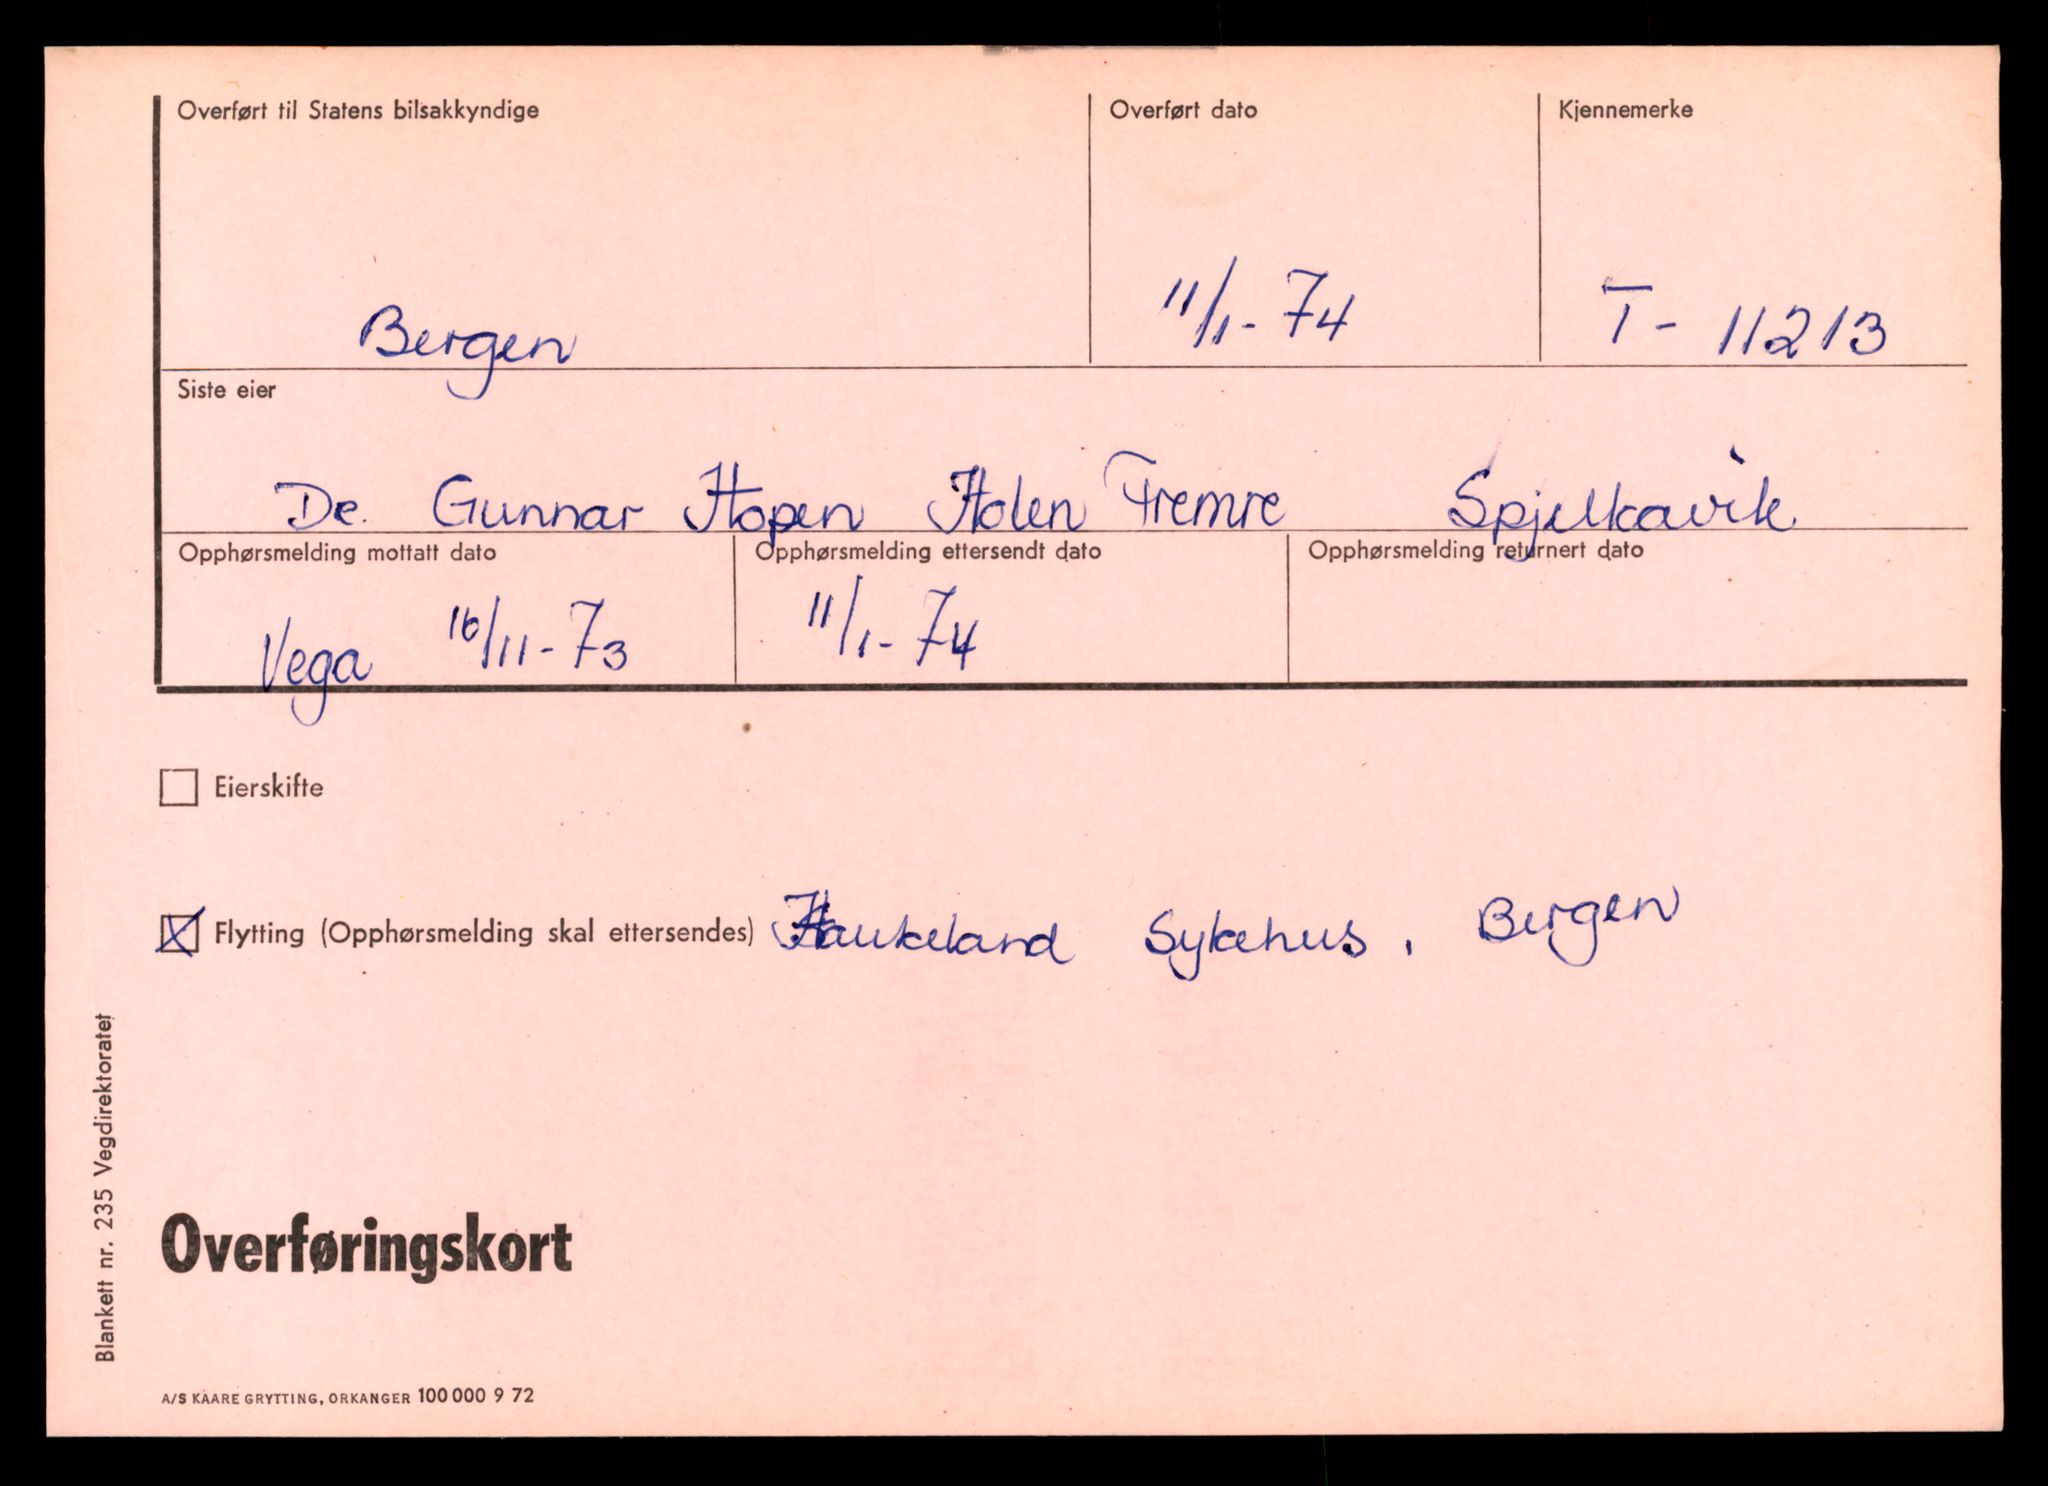 Overført til Statens bilsakkyndige
Overført dato
Kjennemerke
Bergen
11/1-74
T-11213
Siste eier
De. Gunnar Hopen Holen Fremre Spjelkavik
Opphørsmelding mottatt dato
Opphørsmelding ettersendt dato
Opphørsmelding returnert dato
Vega 16/11-73
11/1-74
Eierskifte
Flytting (Opphørsmelding skal ettersendes) Haukeland Sykehus, Bergen
Overføringskort
Blankett nr. 235 Vegdirektoratet
A/S KAARE GRYTTING, ORKANGER 100 000 9 72